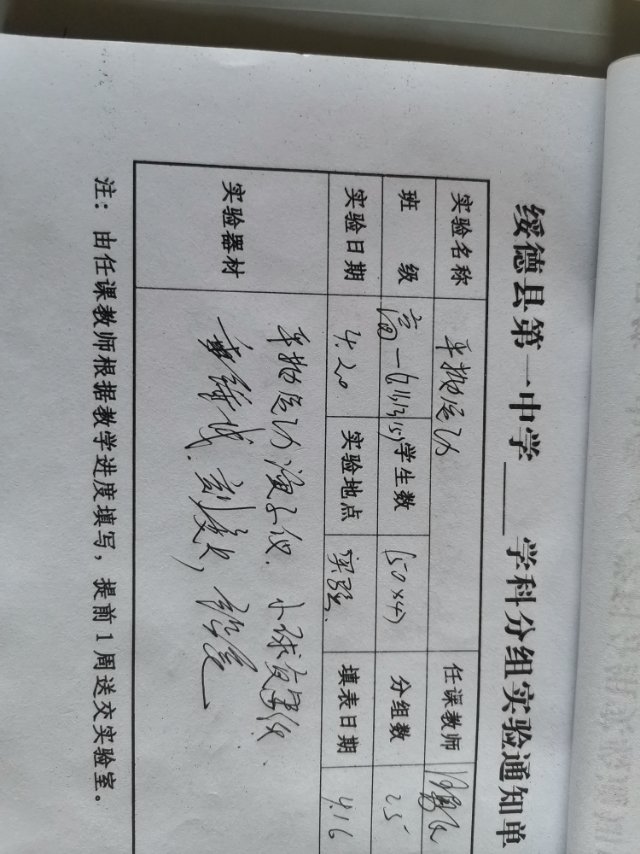 绥德县第一中学____学科分组实验通知单
实验名称 平抛运动 任课教师
班 级 高一 学生数 (50×4) 分组数 25
实验日期 4.20 实验地点 实验 填表日期 4.16
实验器材 平抛运动演示仪. 小球
重锤线. 刻度尺,
注：由任课教师根据教学进度填写，提前1周送交实验室。